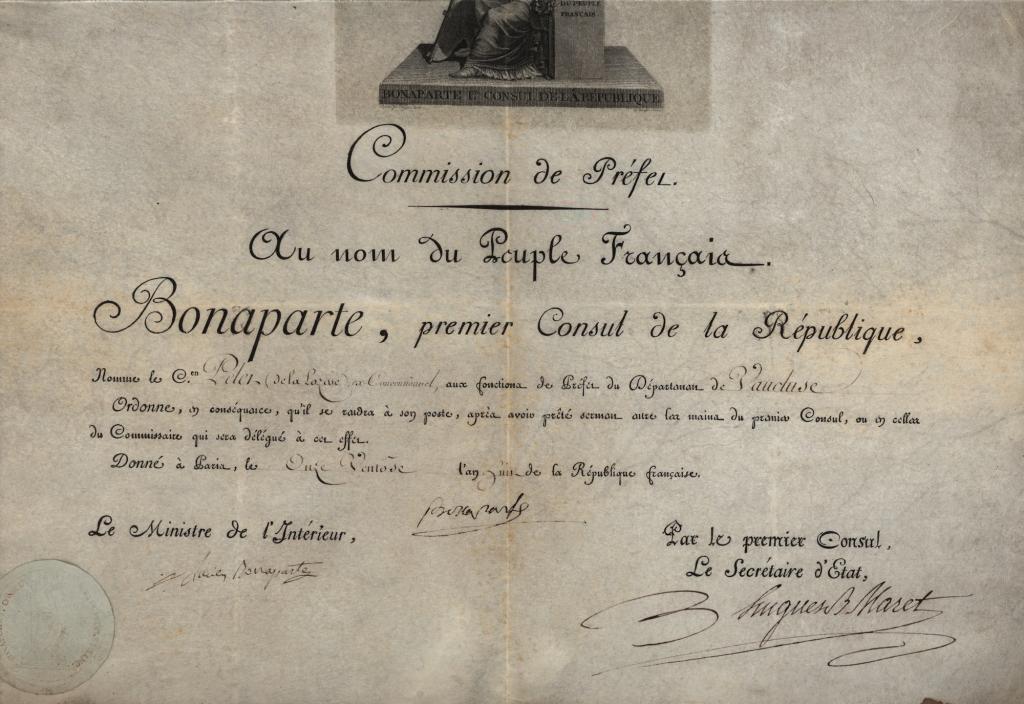 DU PEUPLE
FRANÇAIS
BONAPARTE 1ER CONSUL DE LA REPUBLIQUE
Commission de Préfet.
Au nom du Peuple Français.
Bonaparte, premier Consul de la République,
Nomme le C.en Pelet (de la Lozere) ex Conventionnel, aux fonctions de Préfet du Département de Vaucluse
Ordonne, en conséquence, qu'il se rendra à son poste, après avoir prêté serment entre les mains du premier Consul, ou en celles
du Commissaire qui sera délégué à cet effet.
Donné à Paris, le Onze Ventose l'an huit de la République française.
Bonaparte
Le Ministre de l'Intérieur,
Lucien Bonaparte
Par le premier Consul,
Le Secrétaire d'Etat,
Hugues B. Maret